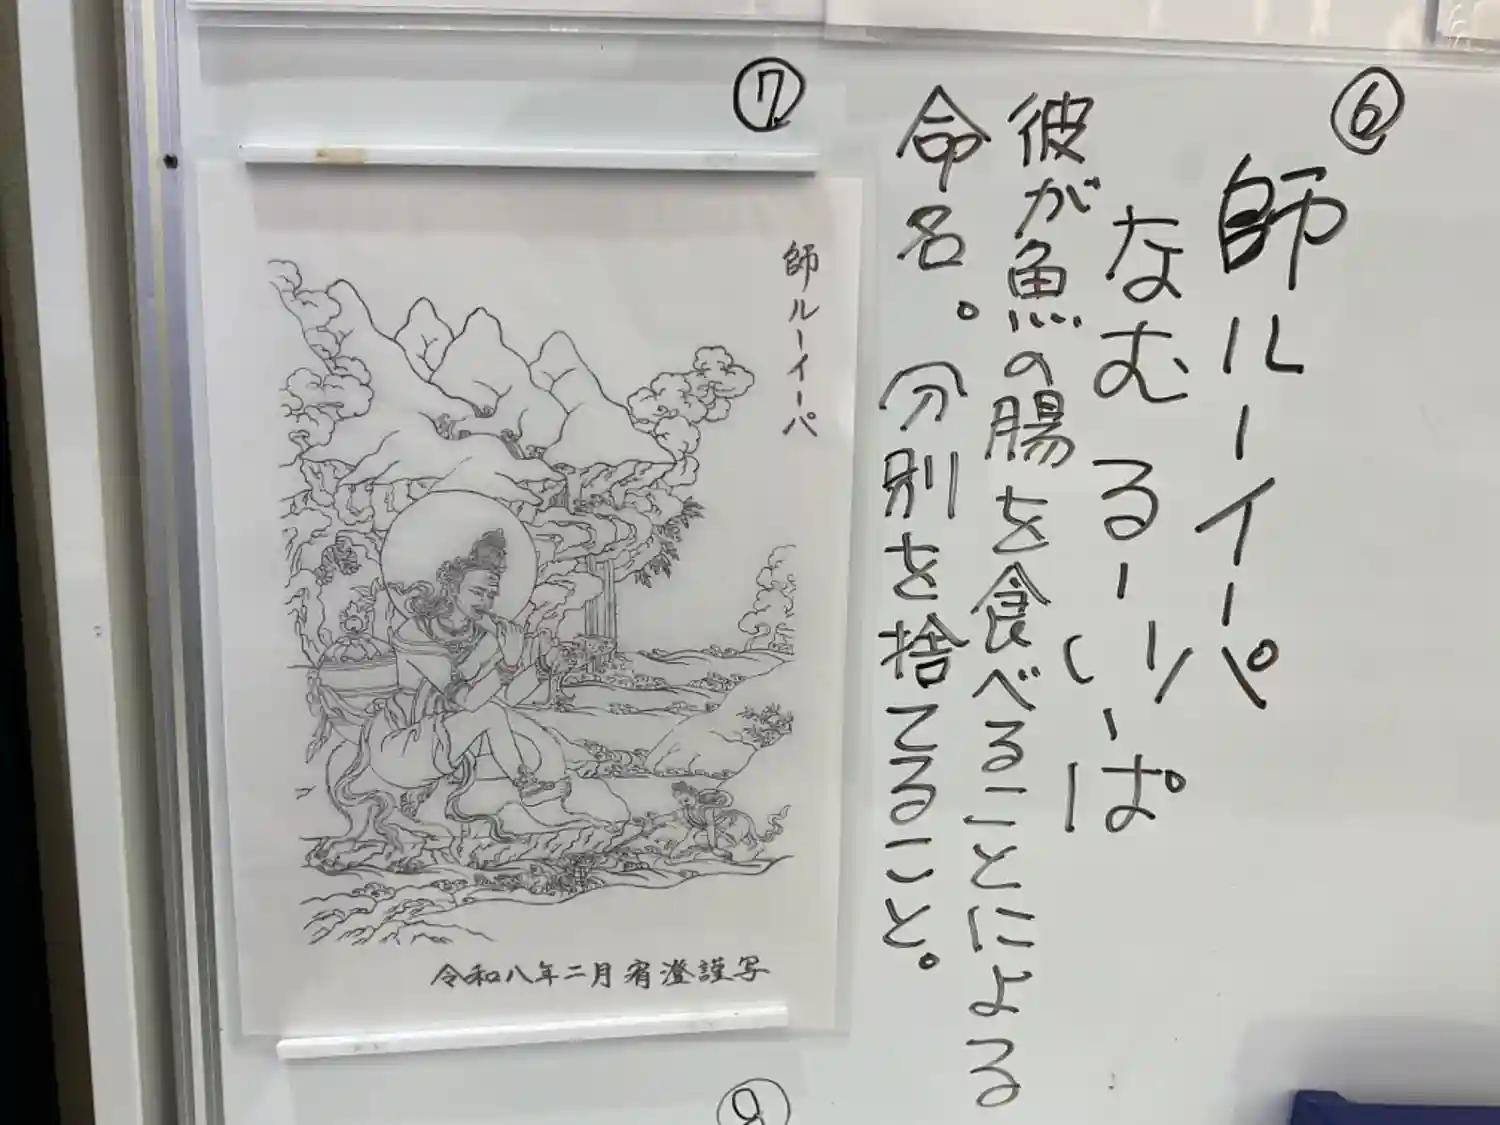 ⑥
師ルーイーパ
なむるーいーぱ
彼が魚の腸を食べることによる
命名。分別を捨てること。
⑦
師ルーイーパ
令和八年二月宥澄謹写